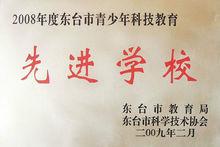 2008年度东台市青少年科技教育
先进学校
东台市教育局
东台市科学技术协会
二00九年二月